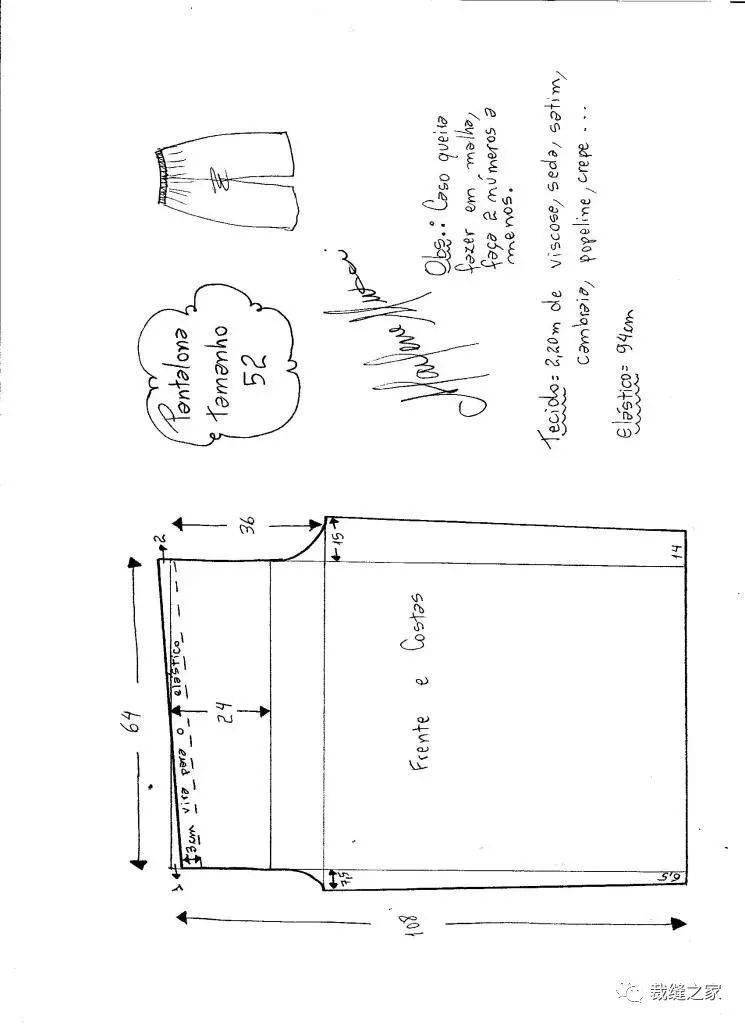 Pantalona
tamanho
52
Obs.: Caso queira
fazer em malha,
faça 2 números a
menos.
Tecido= 2,20m de viscose, seda, satim,
cambraia, popeline, crepe...
Elástico= 94cm
64
2
36
15
24
3cm vira para o elástico
1
7,5
14
6,5
Frente e Costas
108
裁缝之家